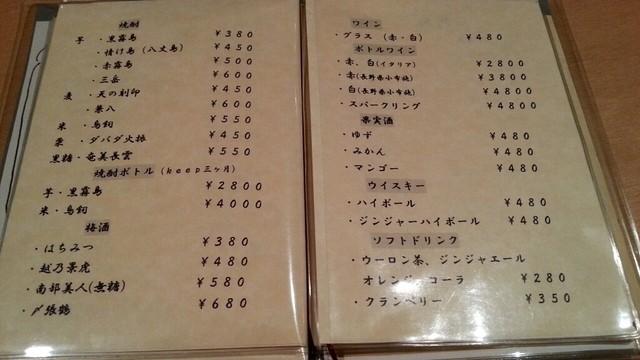 焼酎
芋 ・黒霧島 ¥380
・情け島(八丈島) ¥450
・赤霧島 ¥500
・三岳 ¥600
麦 ・天の刻印 ¥450
・兼八 ¥600
米 ・鳥飼 ¥550
栗 ・ダバダ火振 ¥450
黒糖・奄美長雲 ¥550
焼酎ボトル(keep三ヶ月)
芋・黒霧島 ¥2800
米・鳥飼 ¥4000
梅酒
・はちみつ ¥380
・越乃景虎 ¥480
・南部美人(無糖) ¥580
・〆張鶴 ¥680
ワイン
・グラス (赤・白) ¥480
ボトルワイン
・赤、白(イタリア) ¥2800
・赤(長野県小布施) ¥3800
・白(長野県小布施) ¥4800
・スパークリング ¥4800
果実酒
・ゆず ¥480
・みかん ¥480
・マンゴー ¥480
ウイスキー
・ハイボール ¥480
・ジンジャーハイボール ¥480
ソフトドリンク
・ウーロン茶、ジンジャエール
オレンジ、コーラ ¥280
・クランベリー ¥350